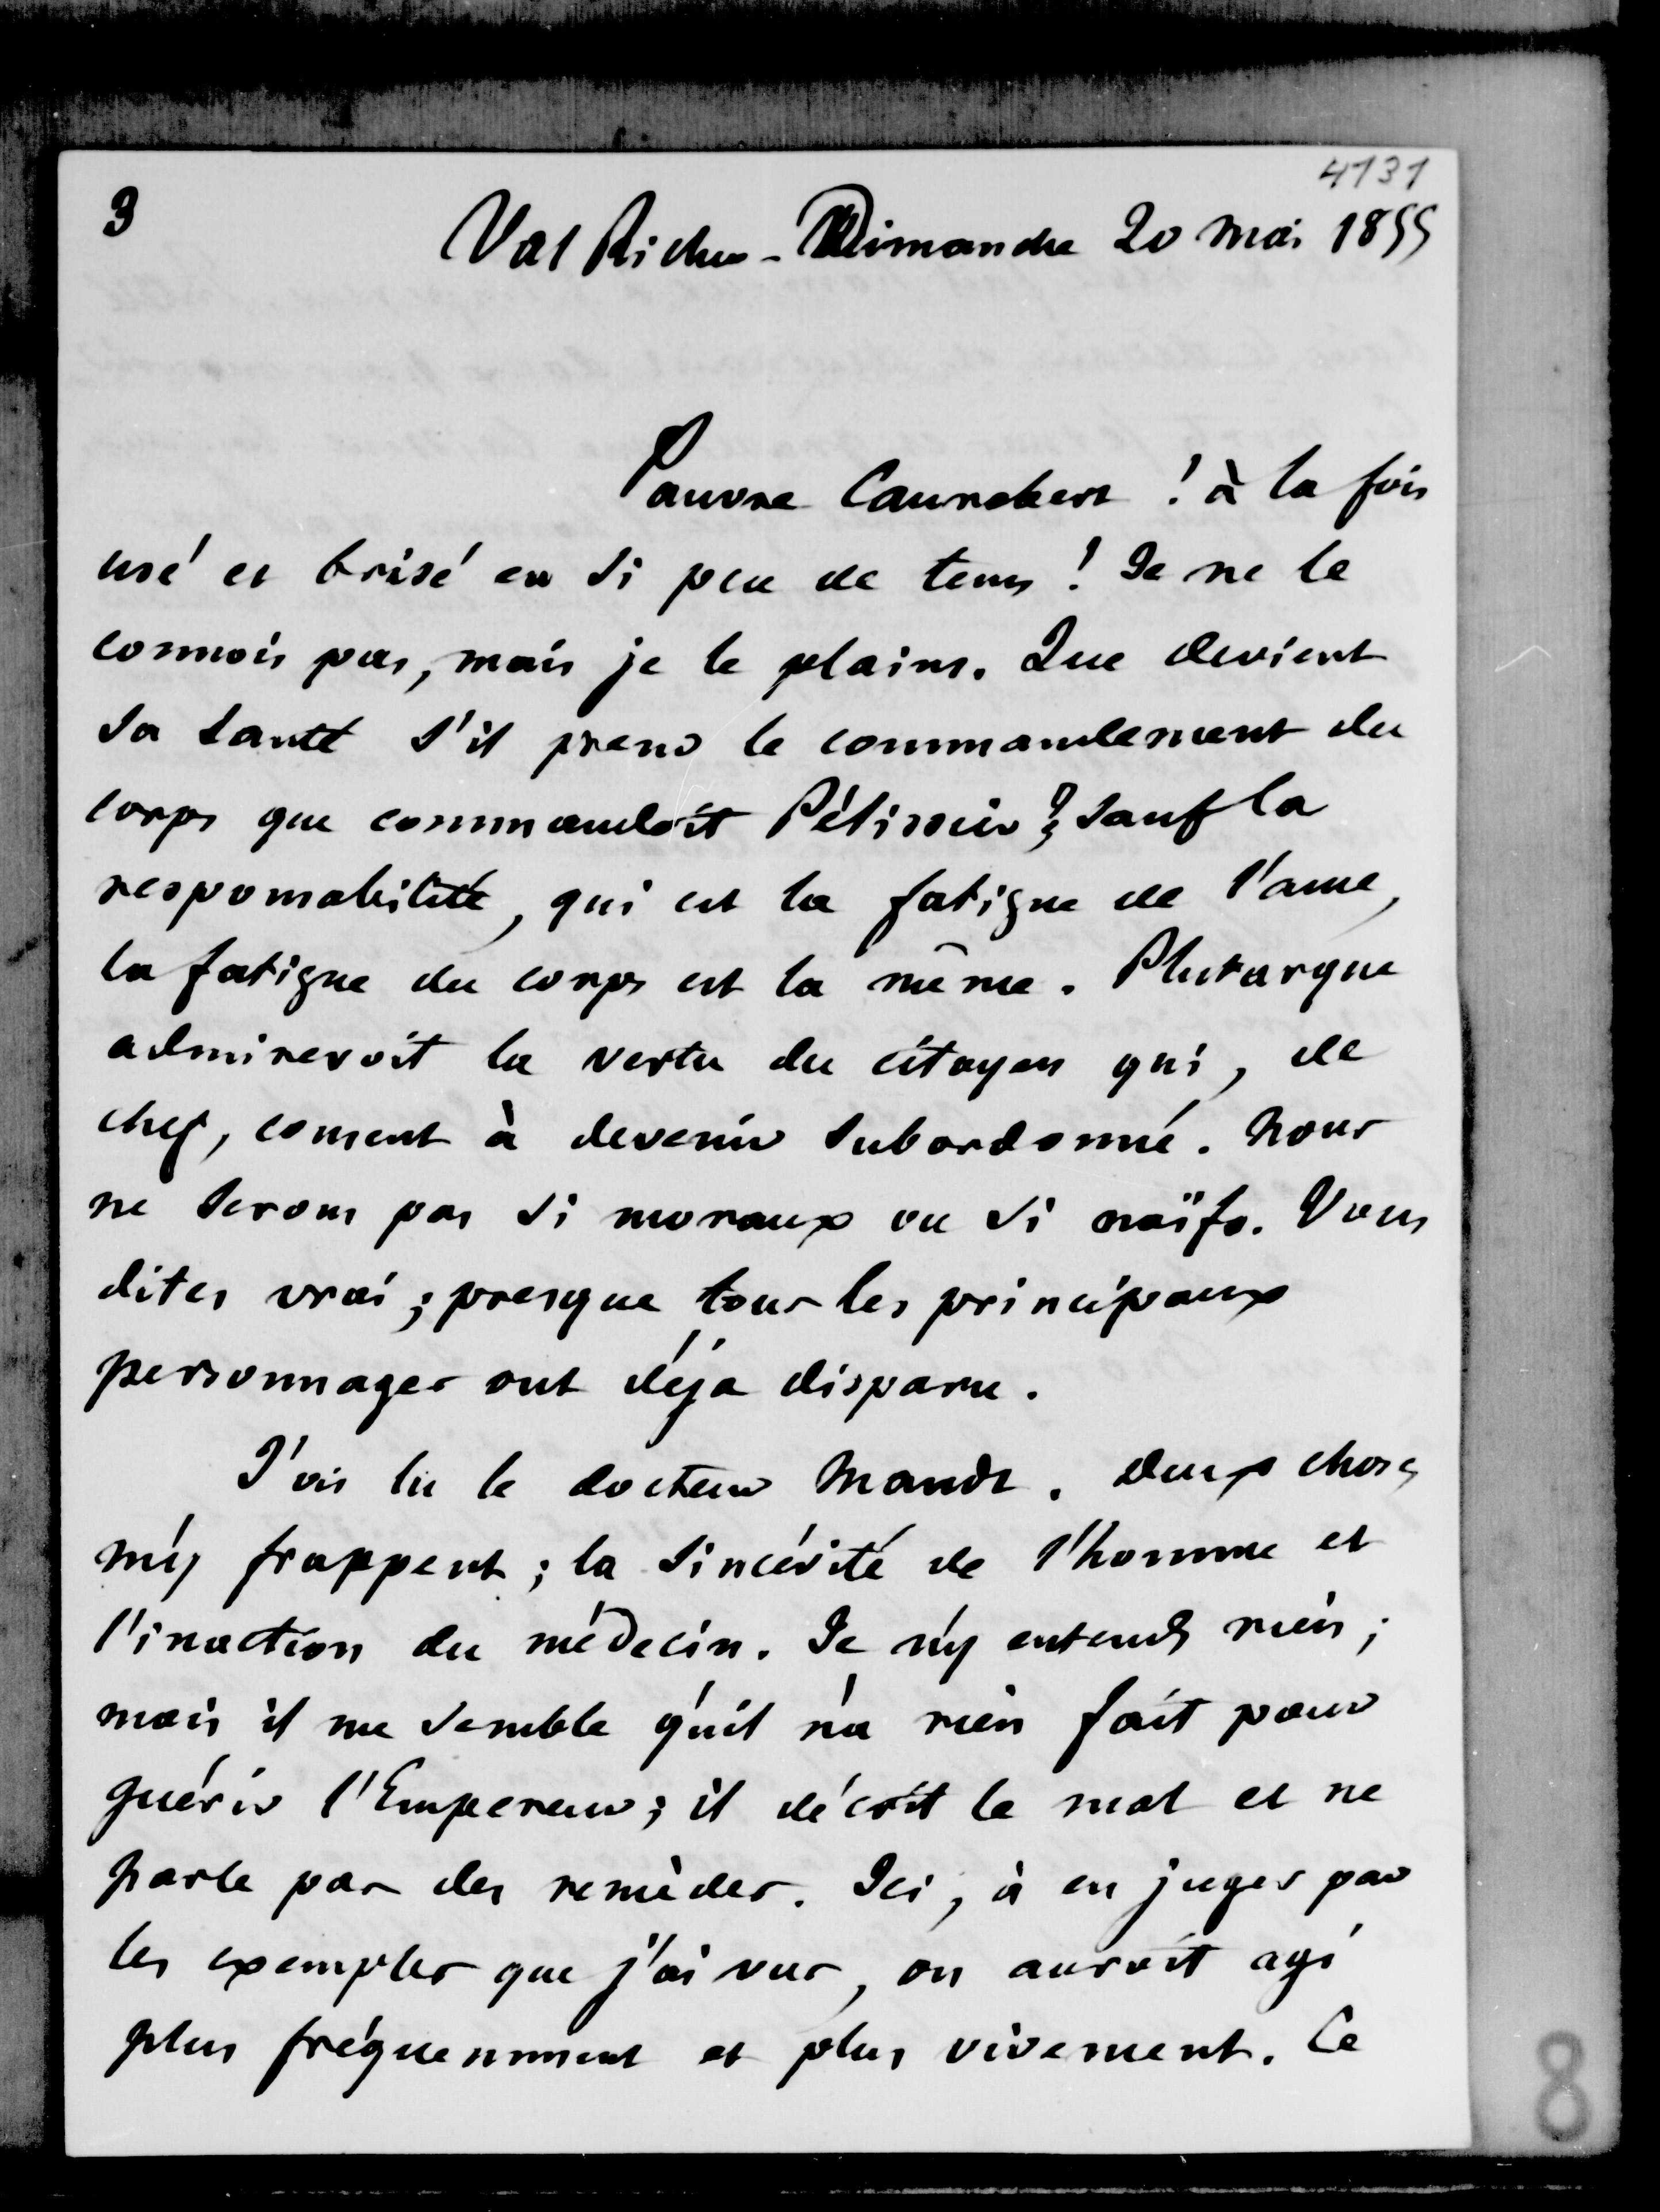 4131
3
Val Richer - Dimanche 20 Mai 1855
Pauvre Canrobert ! à la fois
usé et brisé en si peu de tems ! Je ne le
connois pas, mais je le plains. Que devient
sa santé s'il prend le commandement du
corps que commandoit Pélissier ? Sauf la
responsabilité, qui est la fatigue de l'ame,
la fatigue du corps est la même. Plutarque
admireroit la vertu du citoyen qui, de
chef, consent à devenir subordonné. Nous
ne serons pas si moraux ou si naïfs. Vous
dites vrai ; presque tous les principaux
personnages ont déja disparu.
J'ai lu le docteur Mandt. Deux choses
m'y frappent ; la sincérité de l'homme et
l'inaction du médecin. Je n'y entends rien ;
mais il me semble qu'il n'a rien fait pour
guérir l'Empereur ; il décrit le mal et ne
parle pas des remèdes. Ici, à en juger par
les exemples que j'ai vus, on auroit agi
plus fréquemment et plus vivement. Ce
8